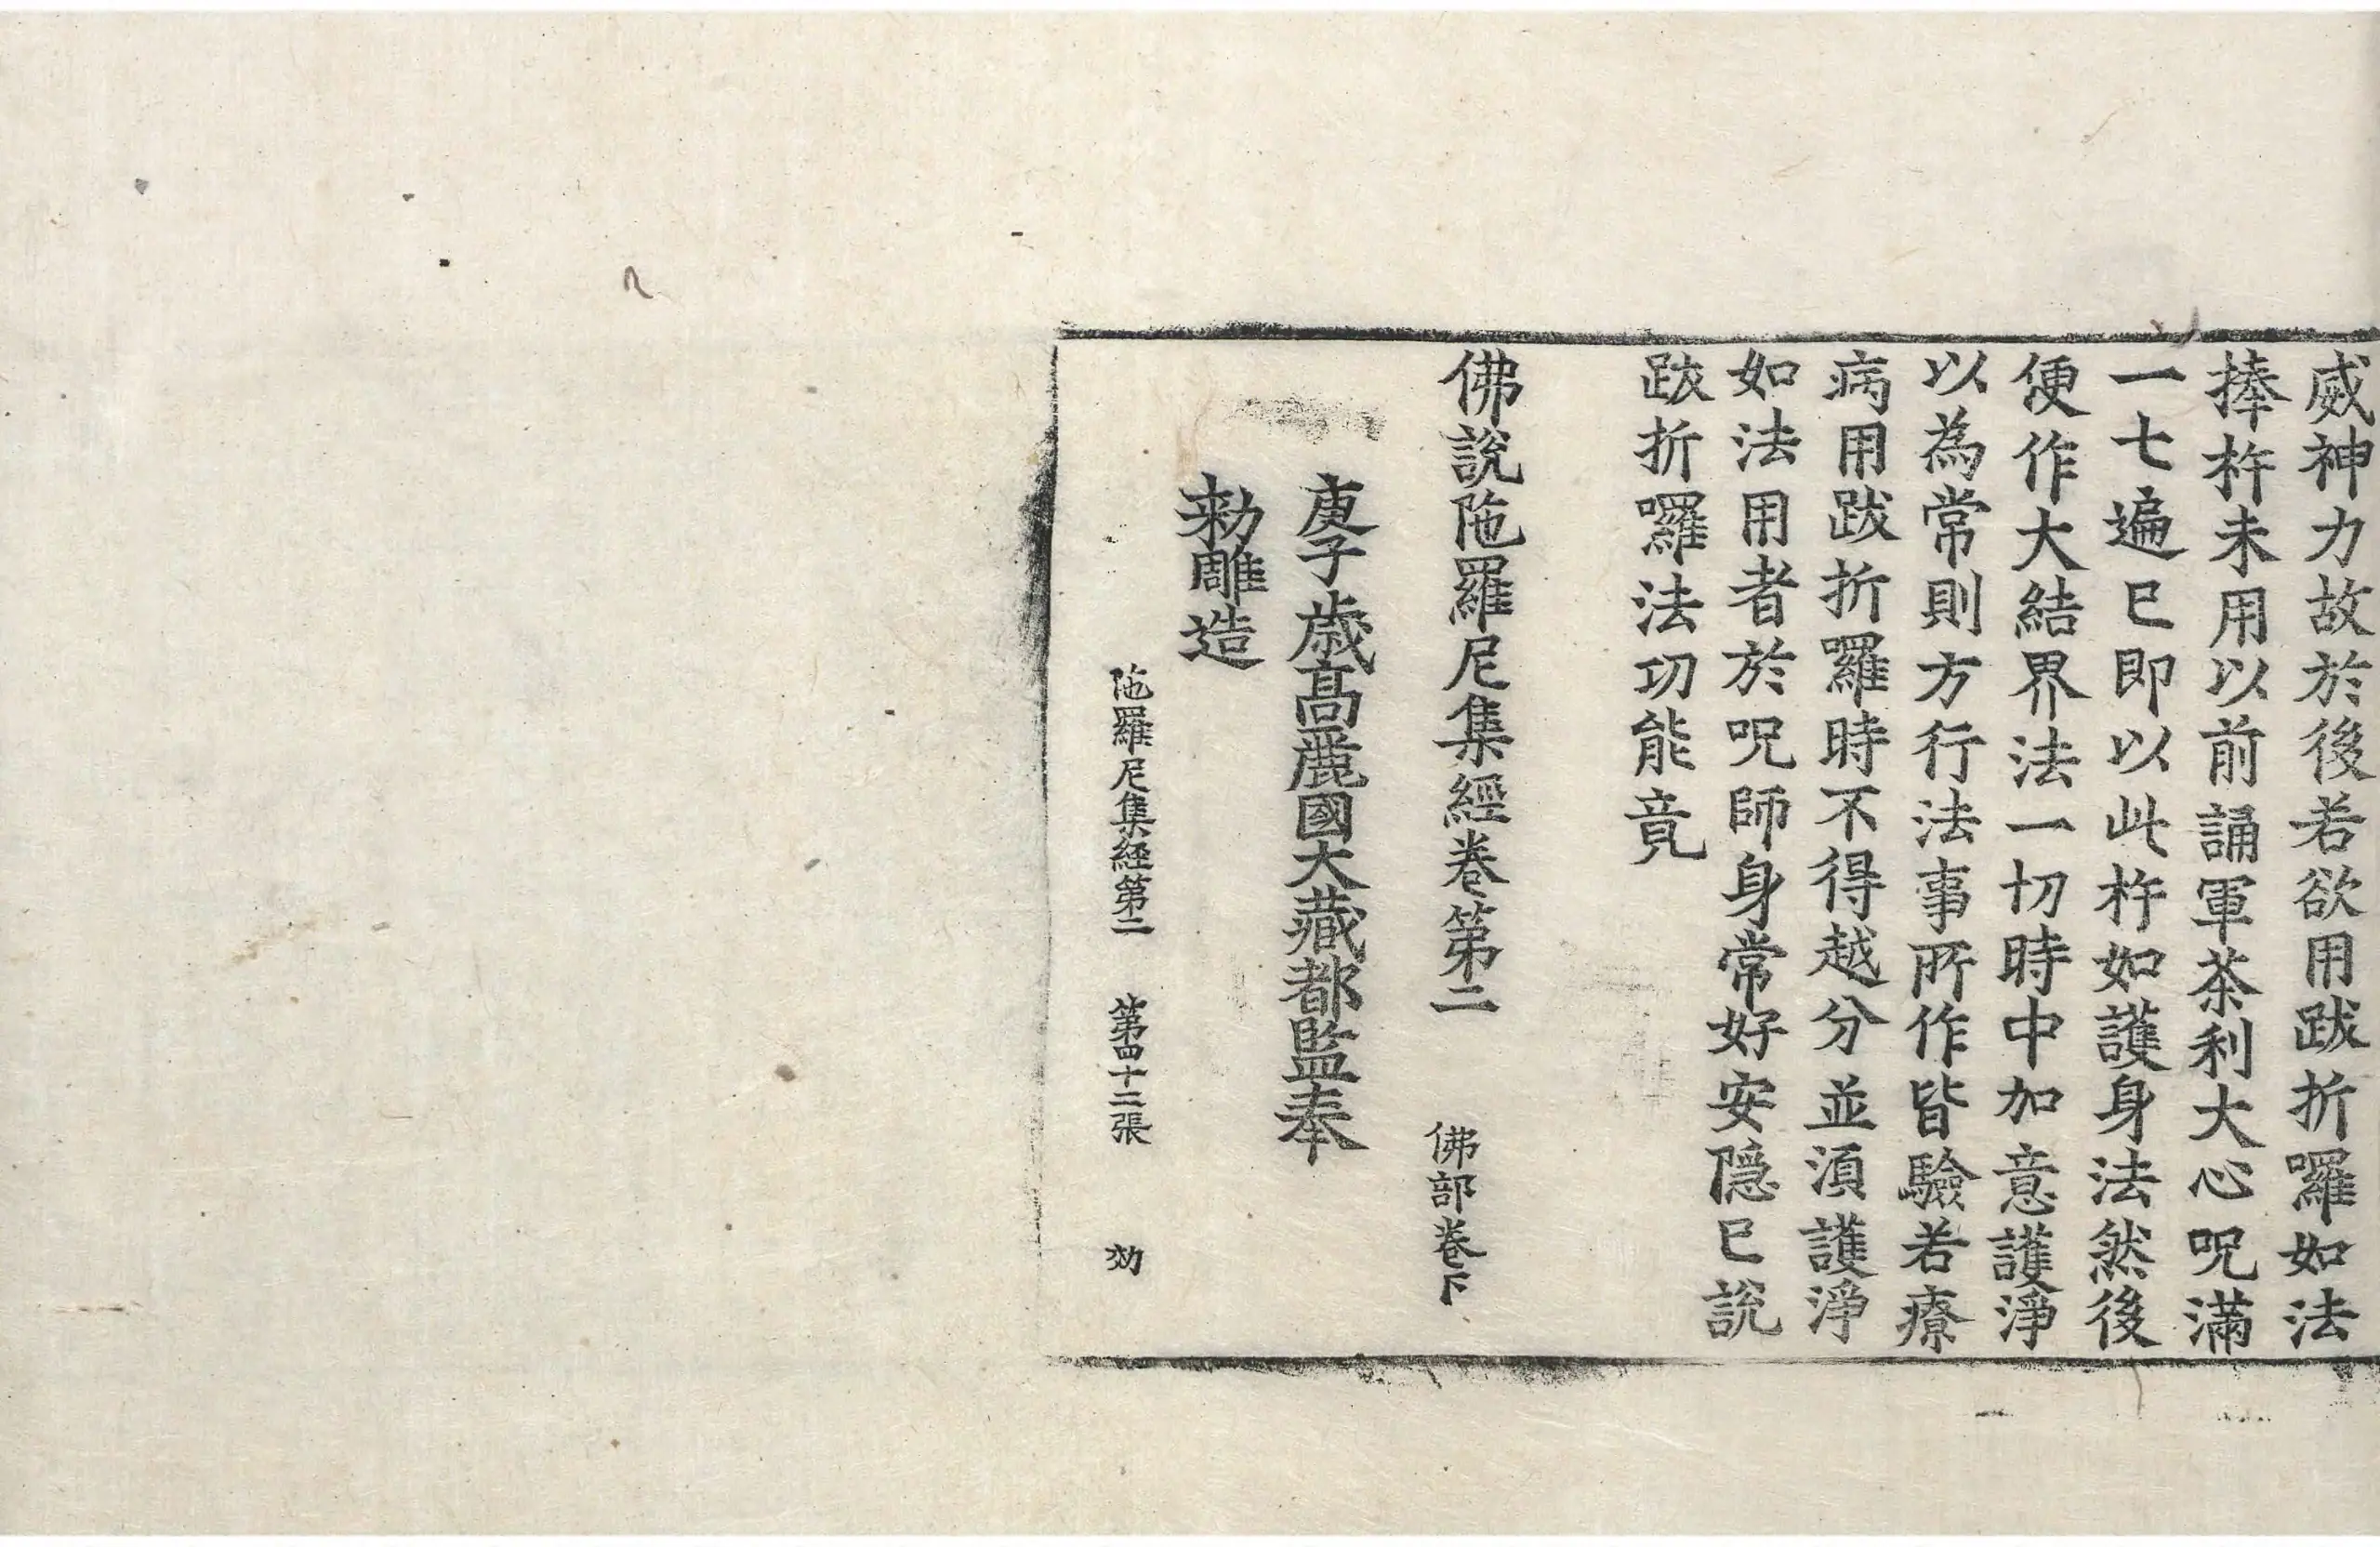 威神力故於後若欲用跋折囉如法
捧杵未用以前誦軍茶利大心呪滿
一七遍已即以此杵如護身法然後
便作大結界法一切時中加意護淨
以為常則方行法事所作皆驗若療
病用跋折囉時不得越分並須護淨
如法用者於呪師身常好安隱已說
跋折囉法功能竟
佛說陁羅尼集經卷第二 佛部卷下
庚子歲高麗國大藏都監奉
勑雕造
陁羅尼集経第二 第四十二張 効